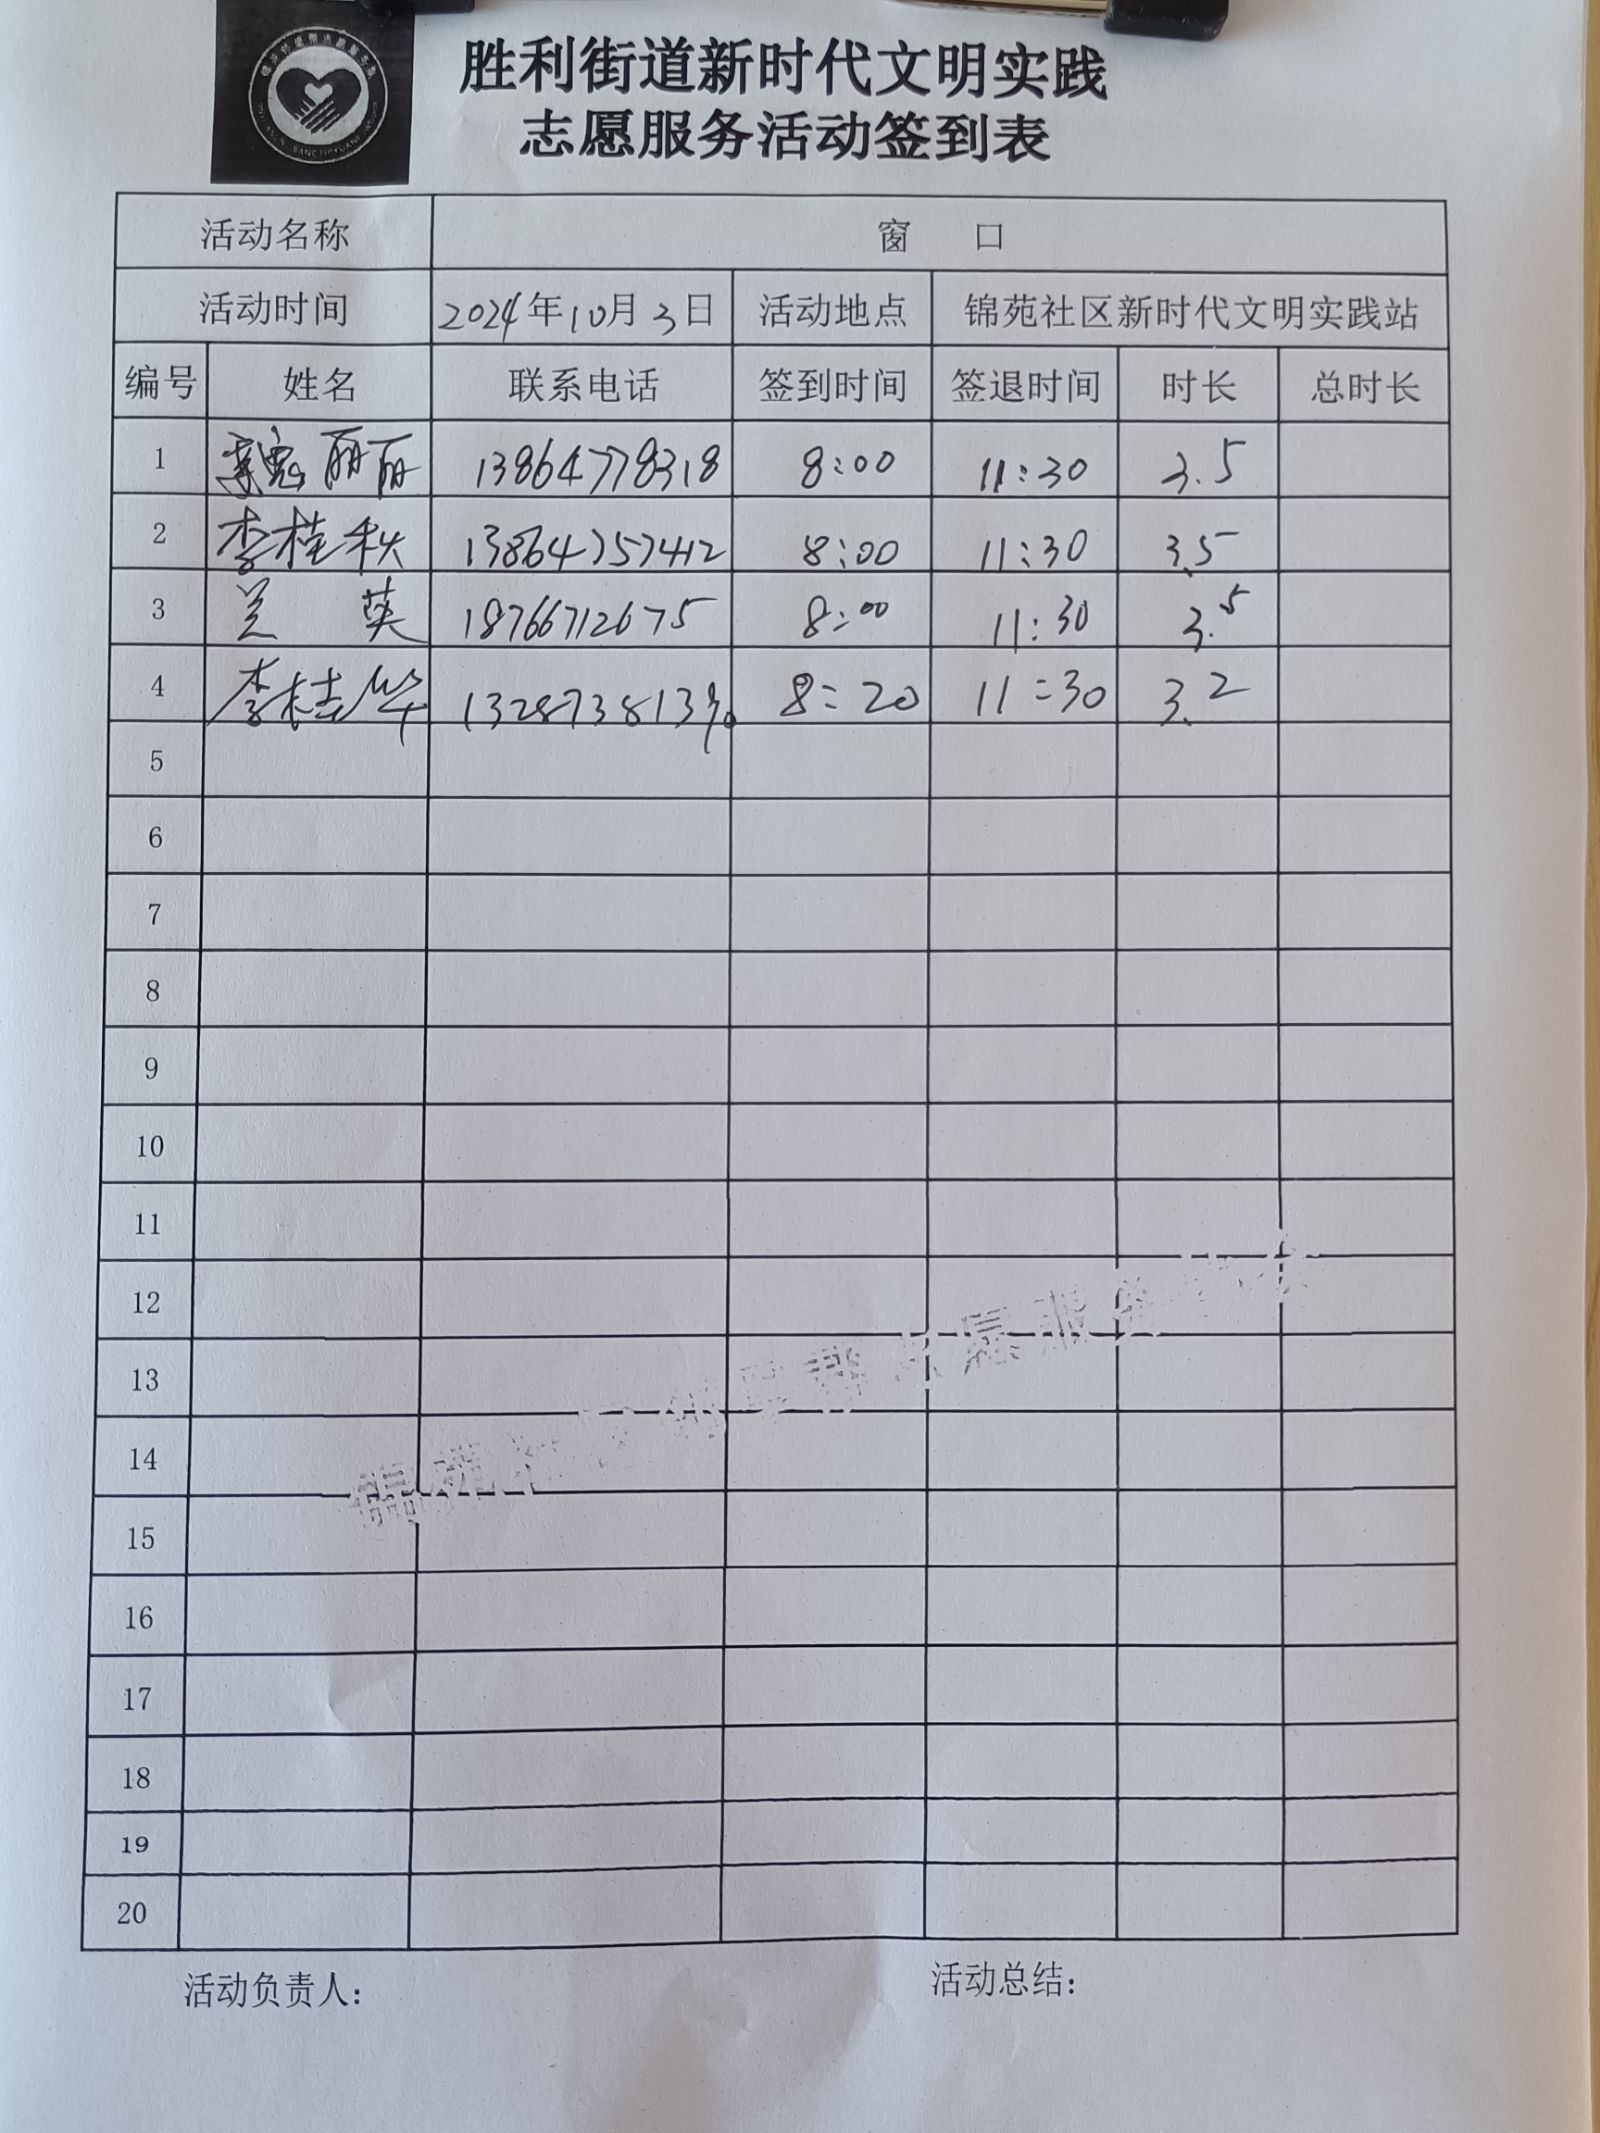 胜利街道新时代文明实践
志愿服务活动签到表
活动名称 窗 口
活动时间 2024年10月3日 活动地点 锦苑社区新时代文明实践站
编号 姓名 联系电话 签到时间 签退时间 时长 总时长
1 丽丽 13864778318 8:00 11:30 3.5
2 李桂秋 13864757412 8:00 11:30 3.5
3 兰 英 18766712675 8:00 11:30 3.5
4 李桂华 8:20 11:30 3.2
5
6
7
8
9
10
11
12
13
14
15
16
17
18
19
20
活动负责人: 活动总结: